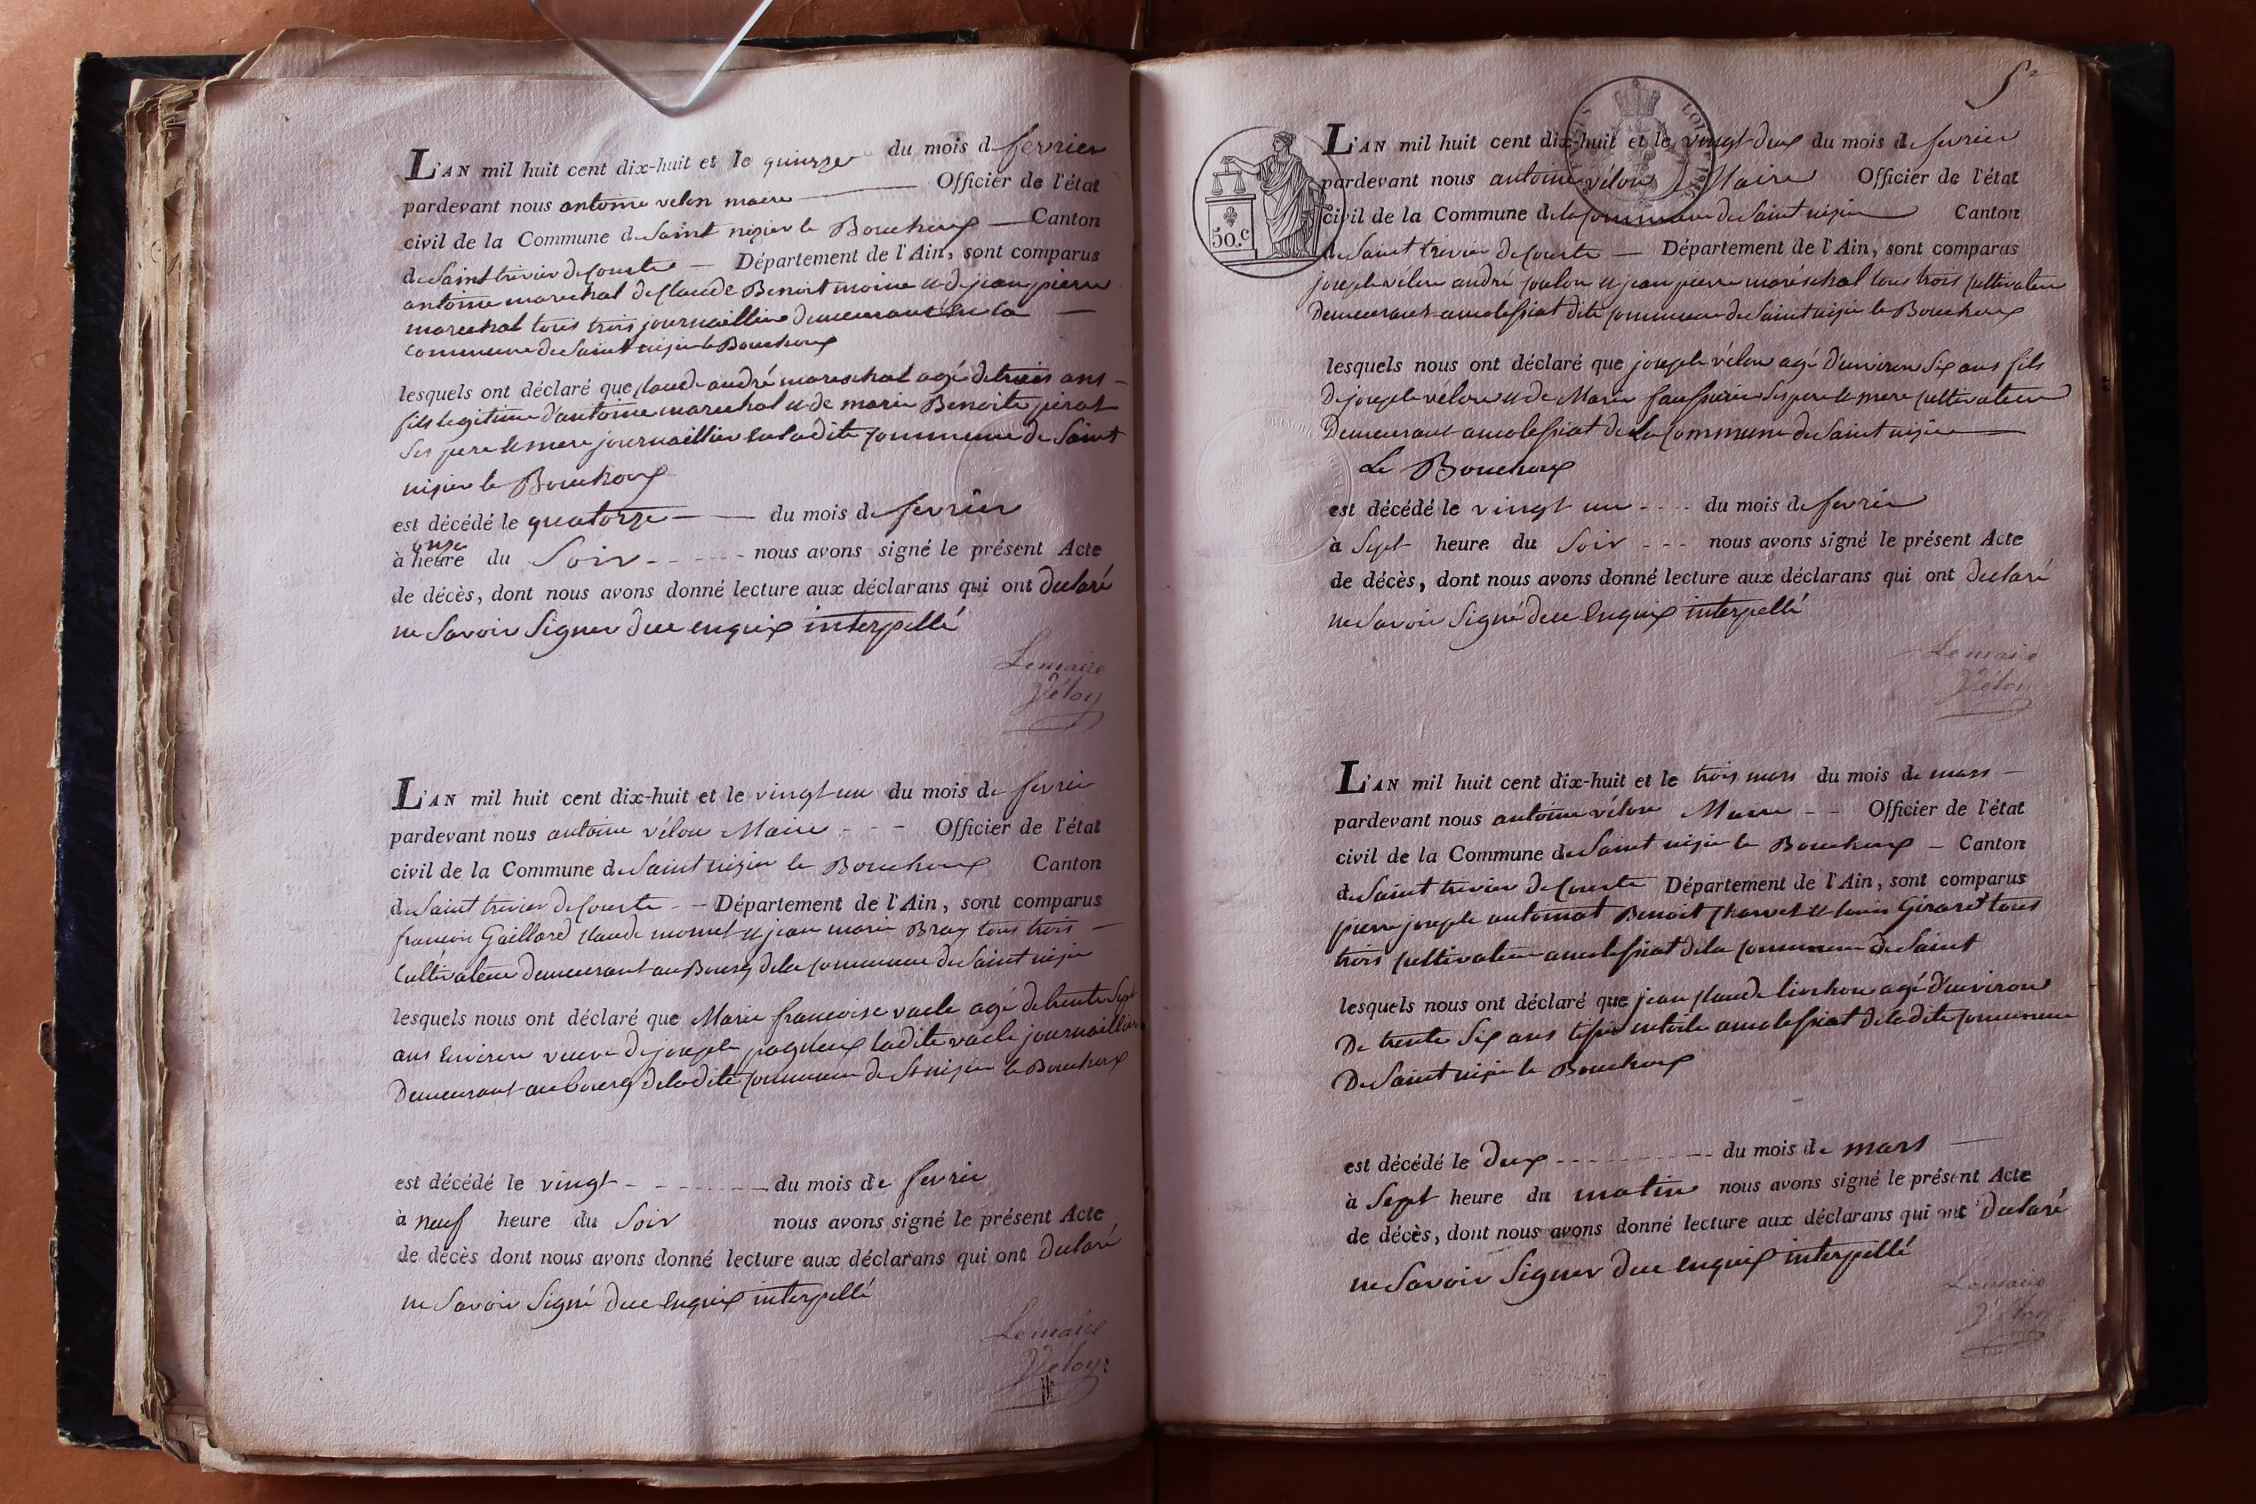 L'AN mil huit cent dix-huit et le quinze du mois de fevrier
pardevant nous antoine velon maire Officier de l'état
civil de la Commune de Saint nizier le Bouchoux Canton
de Saint trivier de Courte Département de l'Ain, sont comparus
antoine marechal de Claude Benoit moine et de jean pierre
marechal tous trois journaillier demeurant en la
Commune de Saint nizier le Bouchoux
lesquels ont déclaré que Claude andré mareschal agé de trois ans
fils legitime d'antoine marechal et de marie Benoite
ses pere et mere journaillier en la dite Commune de Saint
nizier le Bouchoux
est décédé le quatorze du mois de fevrier
onze
à heure du Soir nous avons signé le présent Acte
de décès, dont nous avons donné lecture aux déclarans qui ont declaré
ne Savoir Signer de ce enquix interpellé
Le maire
Vélon
L'AN mil huit cent dix-huit et le vingt un du mois de fevrier
pardevant nous antoine vélon Maire Officier de l'état
civil de la Commune de Saint nizier le Bouchoux Canton
de Saint trivier de Courte Département de l'Ain, sont comparus
francois Gaillard Claude et jean marie Bray tous trois
Cultivateur demeurant au Bourg de la Commune de Saint nizier
lesquels nous ont déclaré que Marie francoise vacle agé de trente Sept
ans Environ veuve de joseph ladite vacle journaillier
Demeurant au bourg de la dite Commune de St nizier le Bouchoux
est décédé le vingt du mois de fevrier
à neuf heure du Soir nous avons signé le présent Acte
de décès dont nous avons donné lecture aux déclarans qui ont declaré
ne Savoir Signé de ce Enquix interpellé
Le maire
Vélon
5
50.c
L'AN mil huit cent dix-huit et le vingt deux du mois de fevrier
pardevant nous antoine vélon Maire Officier de l'état
civil de la Commune de la Commune de Saint nizier Canton
de Saint trivier de Courte Département de l'Ain, sont comparus
joseph vélon andré et jean pierre maréschal tous trois Cultivateur
Demeurant dite Commune de Saint nizier le Bouchoux
lesquels nous ont déclaré que joseph vélon agé D'environ Six ans fils
De joseph vélon et de Marie Ses pere et mere Cultivateur
Demeurant de la Commune de Saint nizier
Le Bouchoux
est décédé le vingt un du mois de fevrier
à Sept heure du Soir nous avons signé le présent Acte
de décès, dont nous avons donné lecture aux déclarans qui ont declaré
ne Savoir Signé de ce Enquix interpellé
Le maire
Vélon
L'AN mil huit cent dix-huit et le trois mars du mois de mars
pardevant nous antoine vélon Maire Officier de l'état
civil de la Commune de Saint nizier le Bouchoux Canton
de Saint trivier de Courte Département de l'Ain, sont comparus
pierre joseph Benoit et louis Girard tous
trois Cultivateur de la Commune de Saint
lesquels nous ont déclaré que jean Claude agé d'environ
De trente Six ans de la dite Commune
De Saint nizier le Bouchoux
est décédé le deux du mois de mars
à Sept heure du matin nous avons signé le présent Acte
de décès, dont nous avons donné lecture aux déclarans qui ont Declaré
ne Savoir Signer de ce enquix interpellé
Le maire
Vélon